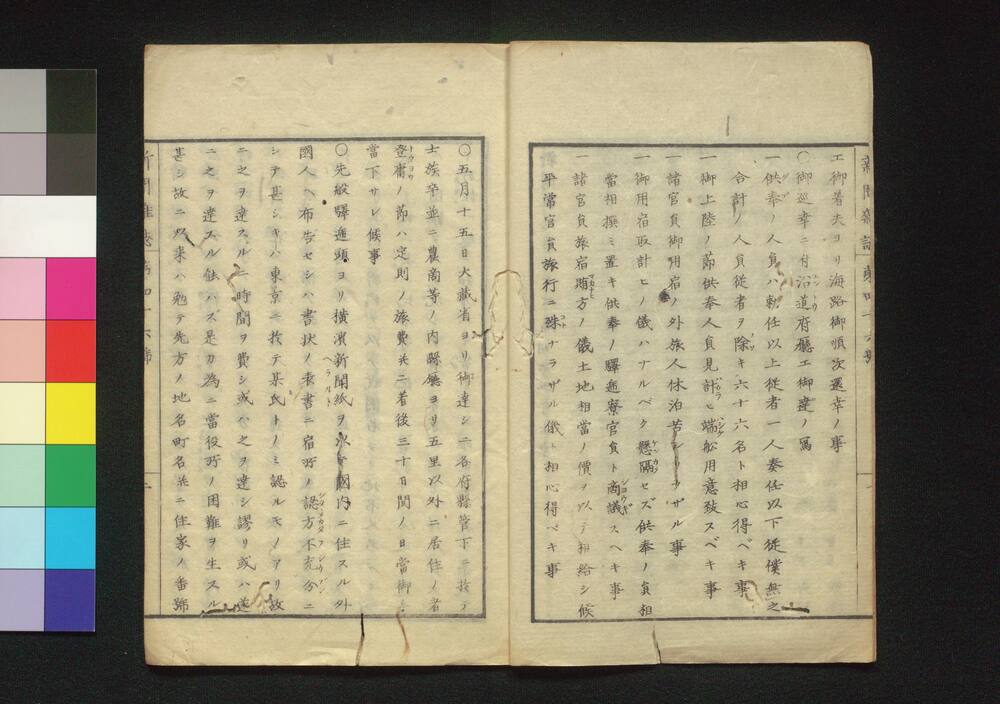 エ御着夫ヨリ海路御順次還幸ノ事
〇御巡幸ニ付沿道府廳エ御達ノ寫
一供奉ノ人員ハ勅任以上従者一人奏任以下従僕無之
合計ノ人員従者ヲ除キ六十六名ト相心得ベキ事
一御上陸ノ節供奉人員見計ヒ端舩用意致スベキ事
一諸官員御用宿ノ外旅人休泊苦シカラザル事
一御用宿取計ヒノ儀ハナルベク懸隔セズ供奉ノ員相
當相撰ミ置キ供奉ノ驛逓寮官員ト商議スヘキ事
一諸官員旅宿賄方ノ儀土地相當ノ價ヲ以テ相給シ候
平常官員旅行ニ殊ナラザル儀ト相心得ベキ事
〇五月十五日大藏省ヨリ御達シニ各府縣管下ニ於テ
士族卒並ニ農商等ノ内縣廳ヨリ五里以外ニ居住ノ者
登庸ノ節ハ定則ノ旅費并ニ着後三十日間ノ日當御
當下サレ候事
〇先般驛逓頭ヨリ横濱新聞紙ヲ以テ國内ニ住スル外
國人ヘ布告セシハ書状ノ表書ニ宿所ノ認方不充分ニ
シテ甚シキハ東京ニ於テ某氏トノミ認ルモノアリ故
ニ之ヲ達スルニ時間ヲ費シ或ハ之ヲ達シ謬リ或ハ遂
ニ之ヲ達スル能ハズ是カ為ニ當役所ノ困難ヲ生スル
甚シ故ニ以来ハ勉テ先方ノ地名町名并ニ住家ノ番號